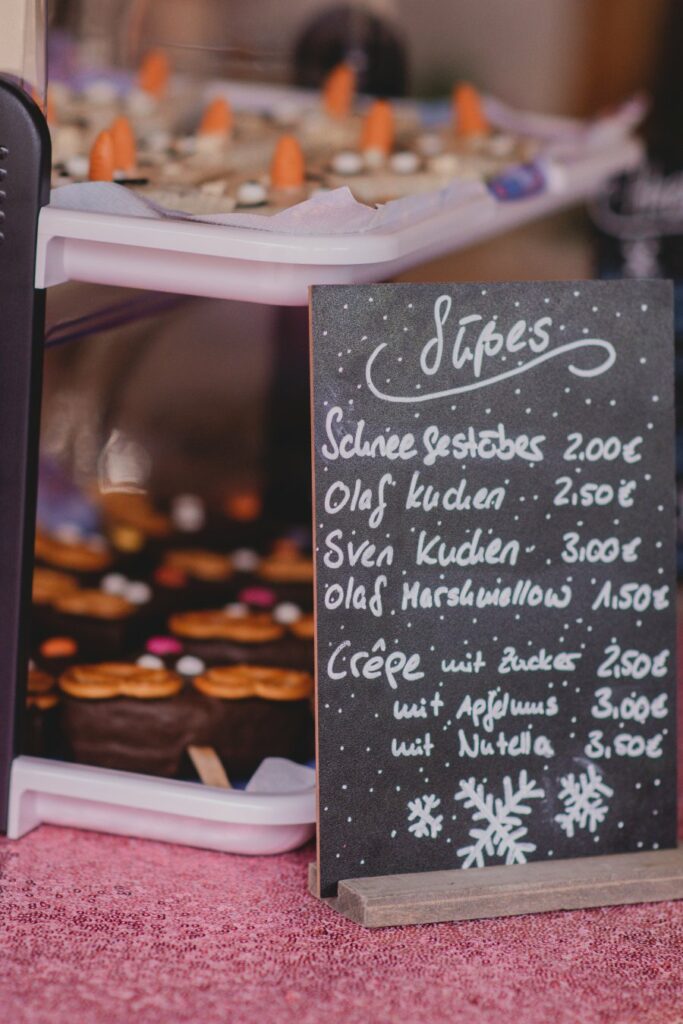 Süßes
Schneegestöber 2.00€
Olaf Kuchen .. 2.50€
Sven Kuchen .. 3.00€
Olaf Marshmellow 1.50€
Crêpe mit Zucker 2.50€
mit Apfelmus 3.00€
mit Nutella 3.50€